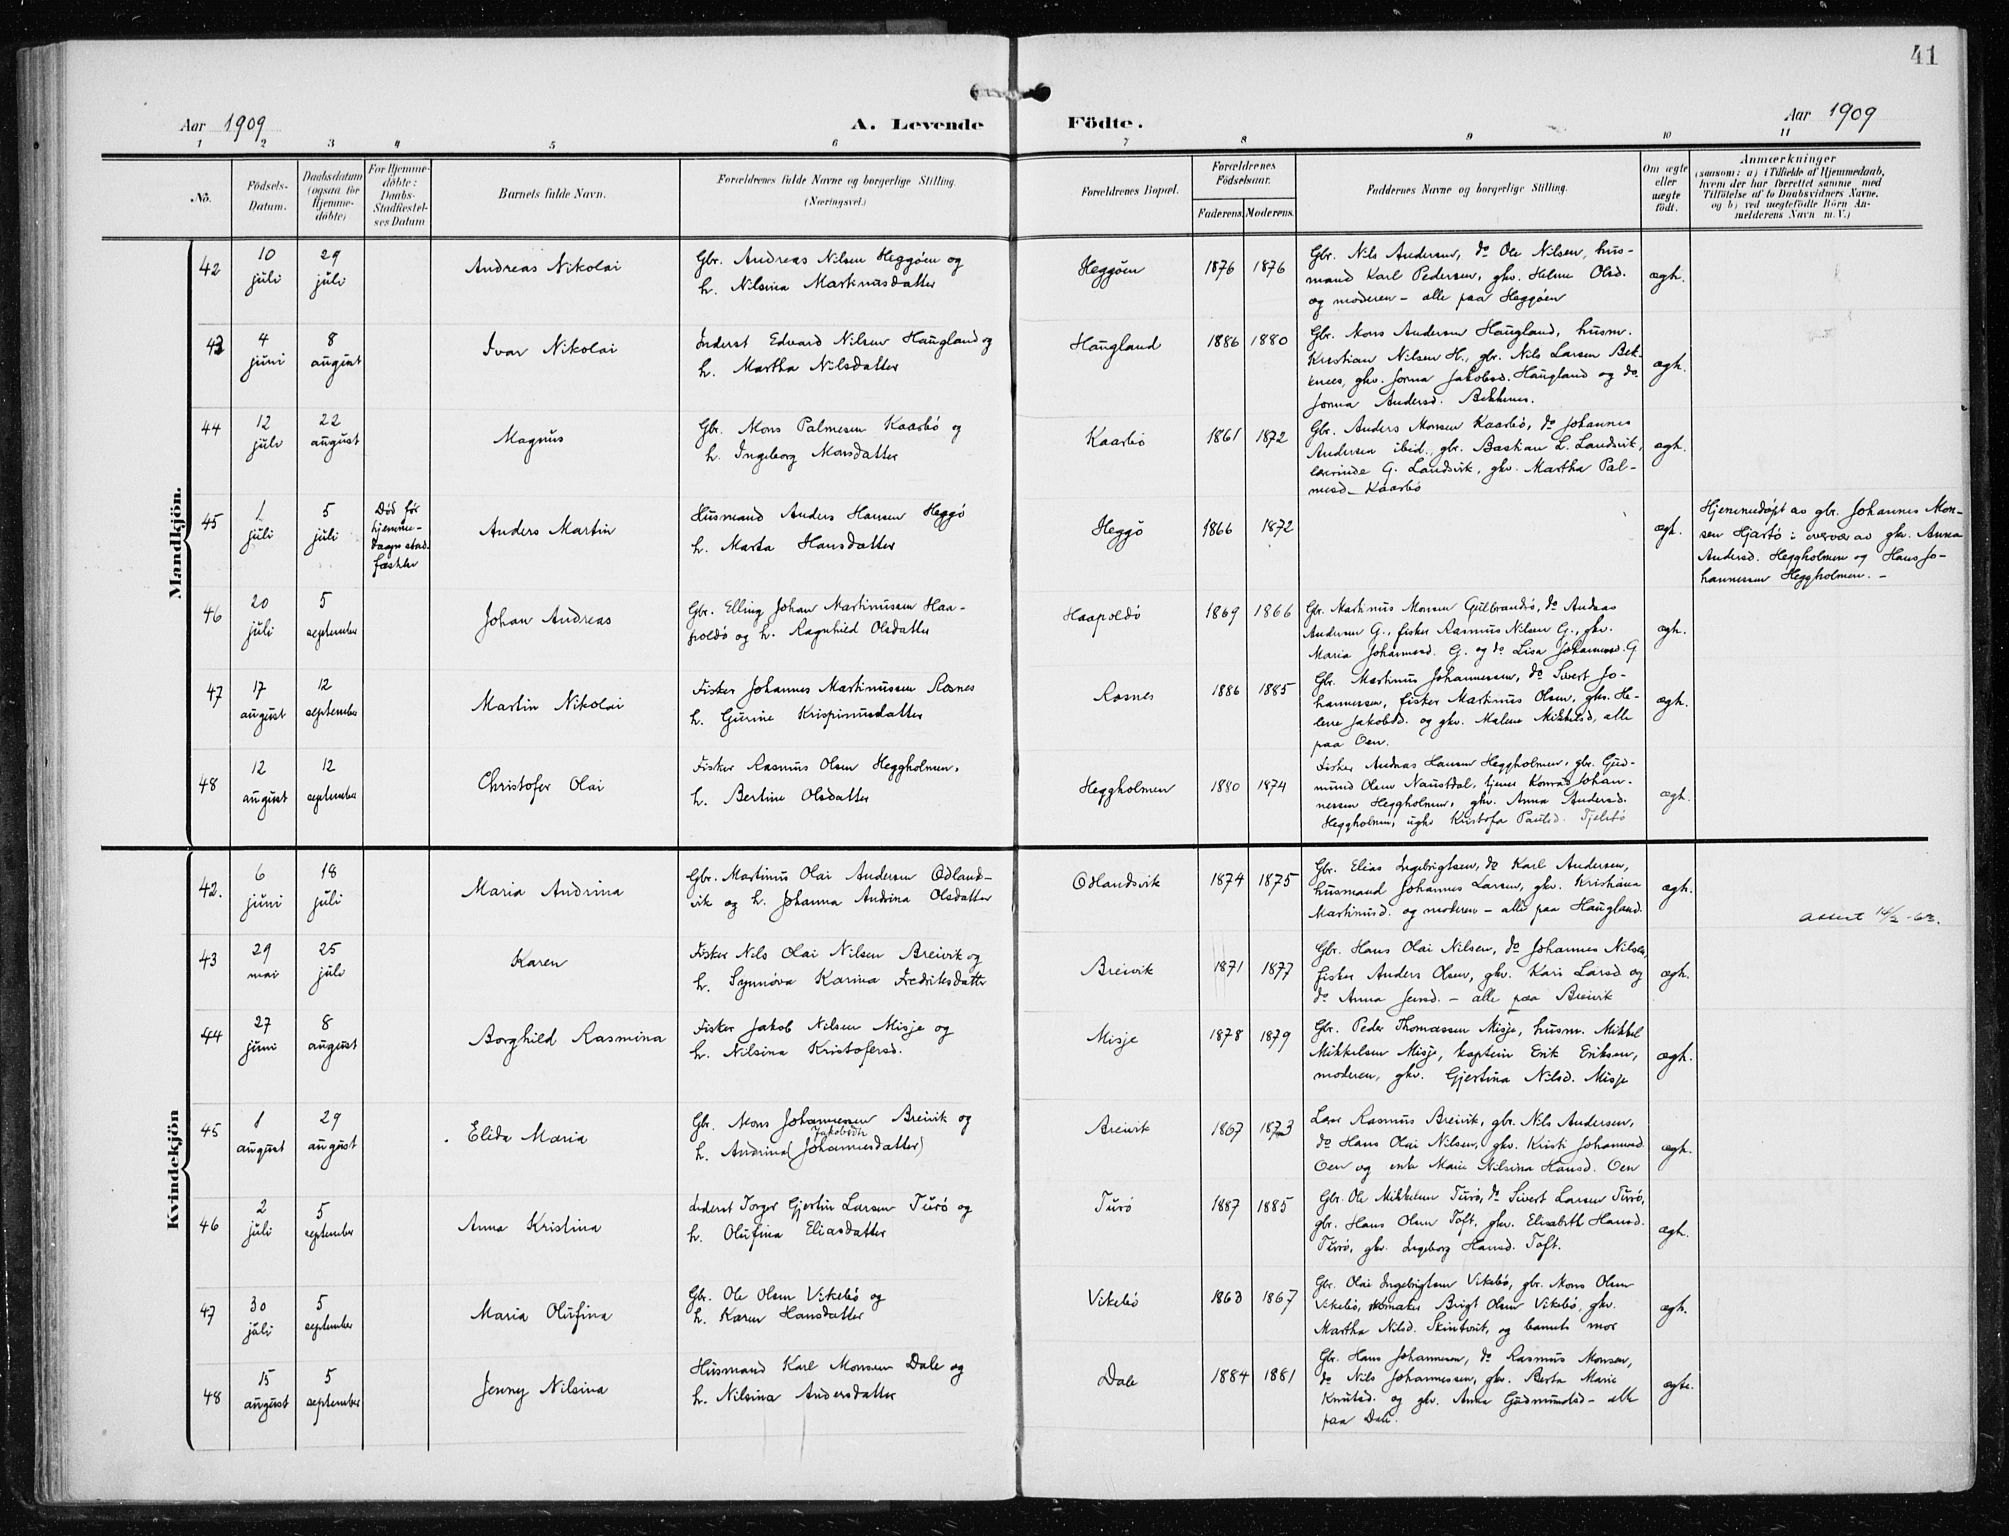 41
Aar 1909 A. Levende Födte. Aar 1909
1 2 3 4 5 6 7 8 9 10 11
No.
Födsels-
Datum.
Daabsdatum
(ogsaa for
Hjemme-
döbte)
For Hjemme-
döbte:
Daabs-
Stadfæstel-
ses Datum
Barnets fulde Navn.
Forældrenes fulde Navne og borgerlige Stilling.
(Næringsvei.)
Forældrenes Bopæl.
Forældrenes
Födselsaar.
Faderens. Moderens.
Faddernes Navne og borgerlige Stilling.
Om ægte
eller
uægte
födt.
Anmærkninger
(saasom: a) i Tilfælde af Hjemmedaab,
hvem der har forrettet samme med
Tilföielse af to Daabsvidners Navne,
og b) ved uægtefödte Börn An-
melderens Navn m. V.)
Mandkjön.
42
10
juli
29
juli
Andreas Nikolai
Gbr. Andreas Nilsen Heggöen og
h. Nilsina Martinusdatter
Heggöen
1876 1876
Gbr. Nils Andersen, do Ole Nilsen, hus-
mand Karl Pedersen, gkv. Helene Olsd.
og moderen - alle paa Heggöen
ægh.
43
4
juni
8
august
Ivar Nikolai
Inderst Edvard Nilsen Haugland og
h. Martha Nilsdatter
Haugland
1886 1880
Gbr. Mons Andersen Haugland, husm.
Kristian Nilsen H., gbr. Nils Larsen Bek-
knes, gkv. Jorna Jakobsd. Haugland og do
Jorna Andersd. Bekknes.
ægh.
44
12
juli
22
august
Magnus
Gbr. Mons Palmesen Kaarbö og
h. Ingeborg Monsdatter
Kaarbö
1861 1872
Gbr. Anders Monsen Kaarbö, do Johannes
Andersen ibid., gbr. Bastian L. Landsvik,
lærerinde G. Landsvik, gkv. Martha Pal-
mesd. Kaarbö
ægh.
45
1
juli
5
juli
Död för
hjemme-
daapn stad-
fæstes
Anders Martin
Husmand Anders Hansen Heggö
h. Marta Hansdatter
Heggö
1866 1872
ægh.
Hjemmedöpt av gbr. Johannes Mon-
sen Hjartö i overvær av gkv. Anna
Andersd. Heggholmen og Hans Jo-
hannessen Heggholmen. -
46
20
juli
5
september
Johan Andreas
Gbr. Elling Johan Martinussen Haa-
poldö og h. Ragnhild Olsdatter
Haapoldö
1869 1866
Gbr. Martinus Monsen Gulbrandsö, do Andreas
Andersen G., fisker Rasmus Nilsen G., gkv.
Maria Johannesd. G. og do Lisa Johannesd. G
ægh.
47
17
august
12
september
Martin Nikolai
Fisker Johannes Martinussen Rosnes
h. Gurine Krispinusdatter
Rosnes
1886 1885
Gbr. Martinus Johannessen, do Sivert Jo-
hannessen, fisker Martinus Olsen, gkv. He-
lene Jakobsd. og gkv. Malene Mikkelsd, alle
paa Oen.
ægh.
48
12
august
12
september
Christofer Olai
Fisker Rasmus Olsen Heggholmen,
h. Bertine Olsdatter
Heggholmen
1880 1874
Fisker Andreas Hansen Heggholmen, gbr. Gud-
mund Olsen Naustdal, tjener Konrad Johan-
nessen Heggholmen, gkv. Anna Andersd.
Heggholmen, ugkv Kristofa Paulsd. Tjeldstö
ægh.
Kvindekjön
42.
6
juni
18
juli
Maria Andrina
Gbr. Martinus Olai Andersen Odland-
vik og h. Johanna Andrina Olsdatter
Odlandsvik
1874 1875
Gbr. Elias Ingebrigtsen, do Karl Andersen,
husmand Johannes Larsen, gkv. Kristiana
Martinusd. og moderen - alle paa Haugland.
ægh.
43
29
mai
25
juli
Karen
Fisker Nils Olai Nilsen Breivik og
h. Synnöva Karina Fredriksdatter
Breivik
1871 1877
Gbr. Hans Olai Nilsen, do Johannes Nilsen,
fisker Anders Olsen, gkv. Kari Larsd og
do Anna Jensd. - alle paa Breivik
ægh.
44
27
juni
8
august
Borghild Rasmina
Fisker Jakob Nilsen Misje og
h. Nilsina Kristofersd.
Misje
1878 1879
Gbr. Peder Thomassen Misje, husm. Mikkel
Mikkelsen Misje, kaptein Erik Eriksen,
moderen, gkv. Gjertina Nilsd. Misje
ægh.
45
1
august
29
august
Elida Maria
Gbr. Mons Johannessen Breivik og
Jakobsdtr
h. Andrina (Johannesdatter)
Breivik
1867 1873
Lærer Rasmus Breivik, gbr. Nils Andersen,
do Hans Olai Nilsen, gkv. Kristi Johannesd.
Oen og enke Marie Nilsina Hansd. Oen
ægh.
46
2
juli
5
september
Anna Kristina
Inderst Torger Gjertin Larsen Turö og
h. Olufina Eliasdatter
Turö
1887 1885
Gbr. Ole Mikkelsen Turö, do Sivert Larsen Turö,
gbr. Hans Olsen Toft, gkv. Elisabeth Hansd.
Turö, gkv. Ingeborg Hansd. Toft.
ægh.
47
30
juli
5
september
Maria Olufina
Gbr. Ole Olsen Vikebö og
h. Karen Hansdatter
Vikebö
1863 1867
Gbr. Olai Ingebrigtsen Vikebö, gbr. Mons Olsen
Vikebö, skomaker Brigt Olsen Vikebö, gkv.
Martha Nilsd. Skintveit, og barnets mor
ægh.
48
15
august
5
september
Jenny Nilsina
Husmand Karl Monsen Dale og
h. Nilsina Andersdatter
Dale
1884 1881
Gbr. Hans Johannesen, do Rasmus Monsen,
do Nils Johannessen, gkv. Berta Marie
Knutsd. og gkv. Anna Gudmundsd - alle
paa Dale.
ægte.